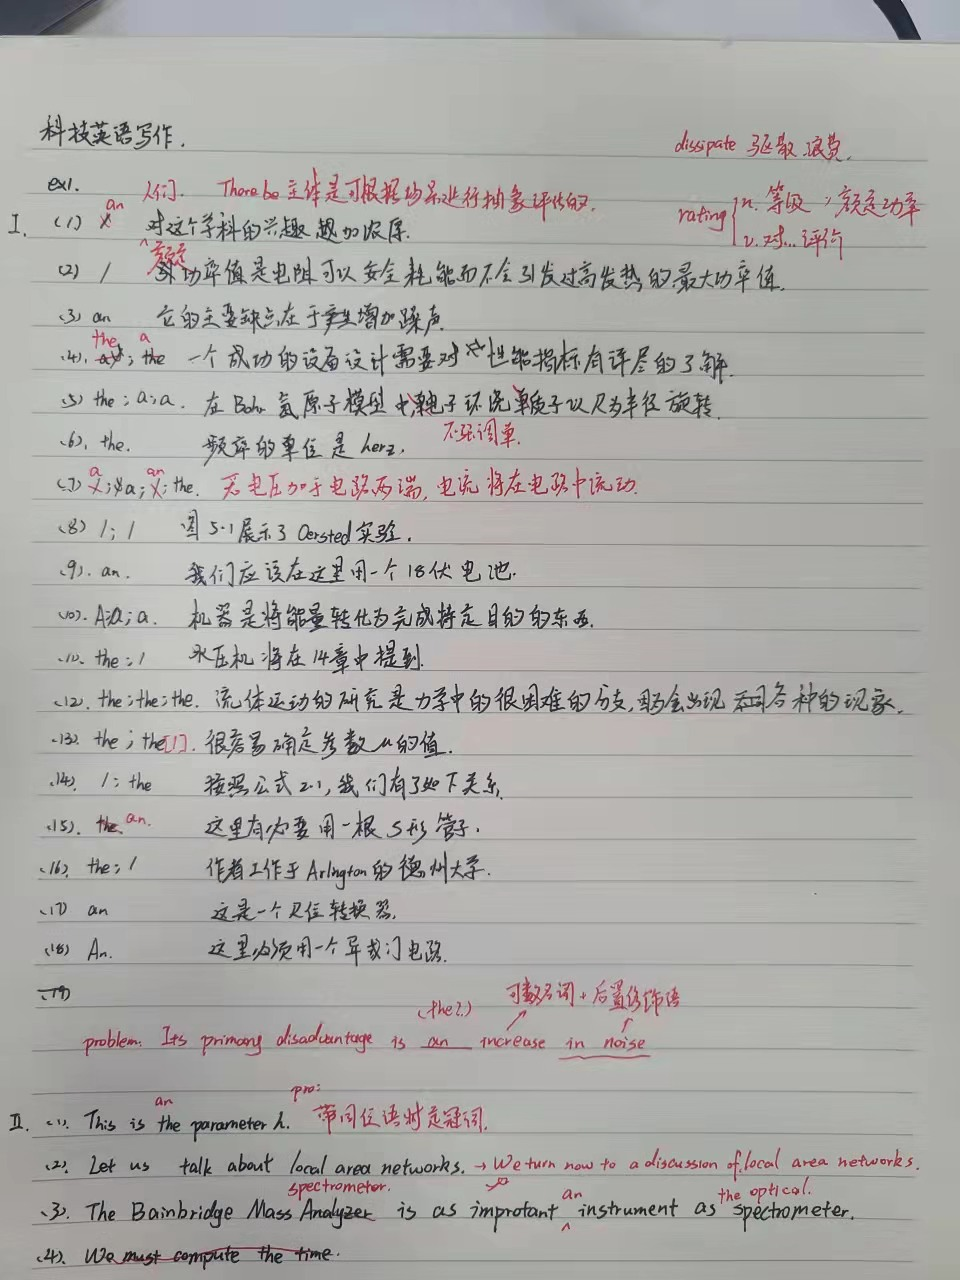 科技英语写作.
dissipate 驱散.浪费.
ex1. 人们. There be 主体是可根据场景进行抽象评估的.
rating { n. 等级; 额定功率
v. 对...评价
I. (1) x an 对这个学科的兴趣更加浓厚.
(2) / 额定功率值是电阻可以安全耗能而不会引发过高发热的最大功率值.
(3) an 它的主要缺点在于产生增加噪声.
(4). the; the a 一个成功的设备设计需要对 性能指标有详尽的了解.
(5) the; a; a. 在Bohr氢原子模型中 电子环绕 质子以R为半径旋转.
不强调单.
(6). the. 频率的单位是 herz.
(7) a x; a; an x; the. 若电压加于电路两端, 电流将在电路中流动.
(8) /; / 图5.1展示了 Oersted 实验.
(9). an. 我们应该在这里用一个18伏电池.
(10). A; a; a. 机器是将能量转化为完成特定目的的东西.
(11). the; / 水压机将在14章中提到.
(12). the; the; the. 流体运动的研究是力学中的很困难的分支, 因为会出现 各种的现象.
(13). the; the [/]. 很容易确定参数μ的值.
(14). /; the 按照公式2.1, 我们有了如下关系.
(15). the. an. 这里有必要用一根S形管子.
(16). the; / 作者工作于Arlington的德州大学.
(17) an 这是一个R位转换器.
(18) An. 这里必须用一个异或门电路.
(19)
(the?) 可数名词 + 后置修饰语
problem: Its primary disadvantage is an increase in noise
II. (1). This is the an parameter h. pro: 带同位语时定冠词.
(2). Let us talk about local area networks. → We turn now to a discussion of local area networks.
spectrometer. an the optical.
(3). The Bainbridge Mass Analyzer is as improtant ^ instrument as spectrometer.
(4). We must compute the time.